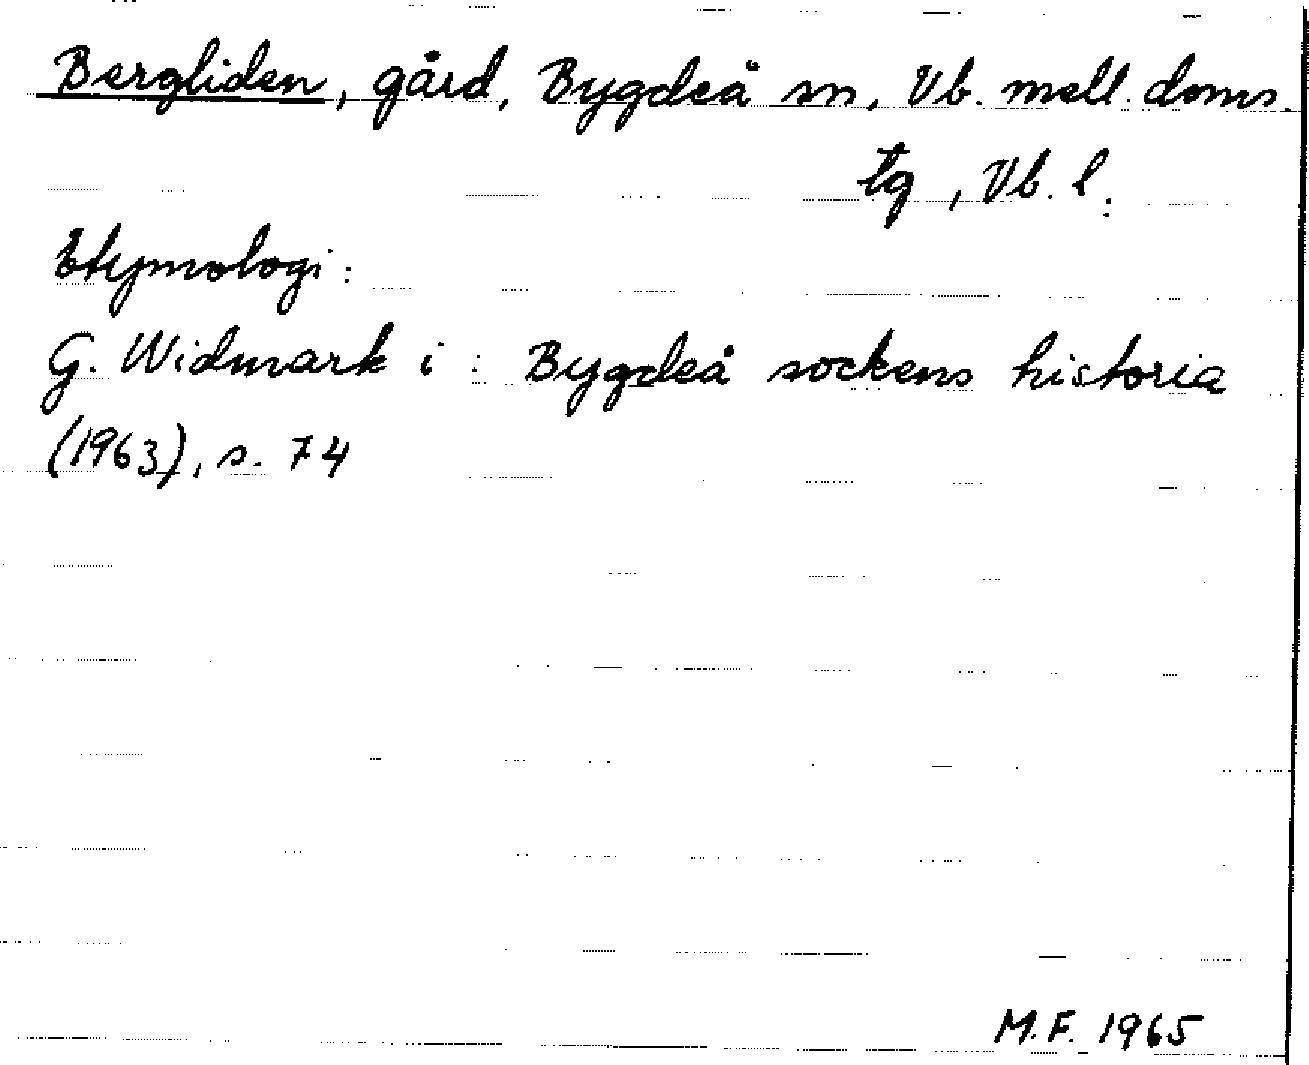 Bergliden, gård, Bygdeå sn, Vb. mell. doms.
tg, Vb. l.
Etymologi:
G. Widmark i: Bygdeå sockens historia
(1963), s. 74
M.F. 1965